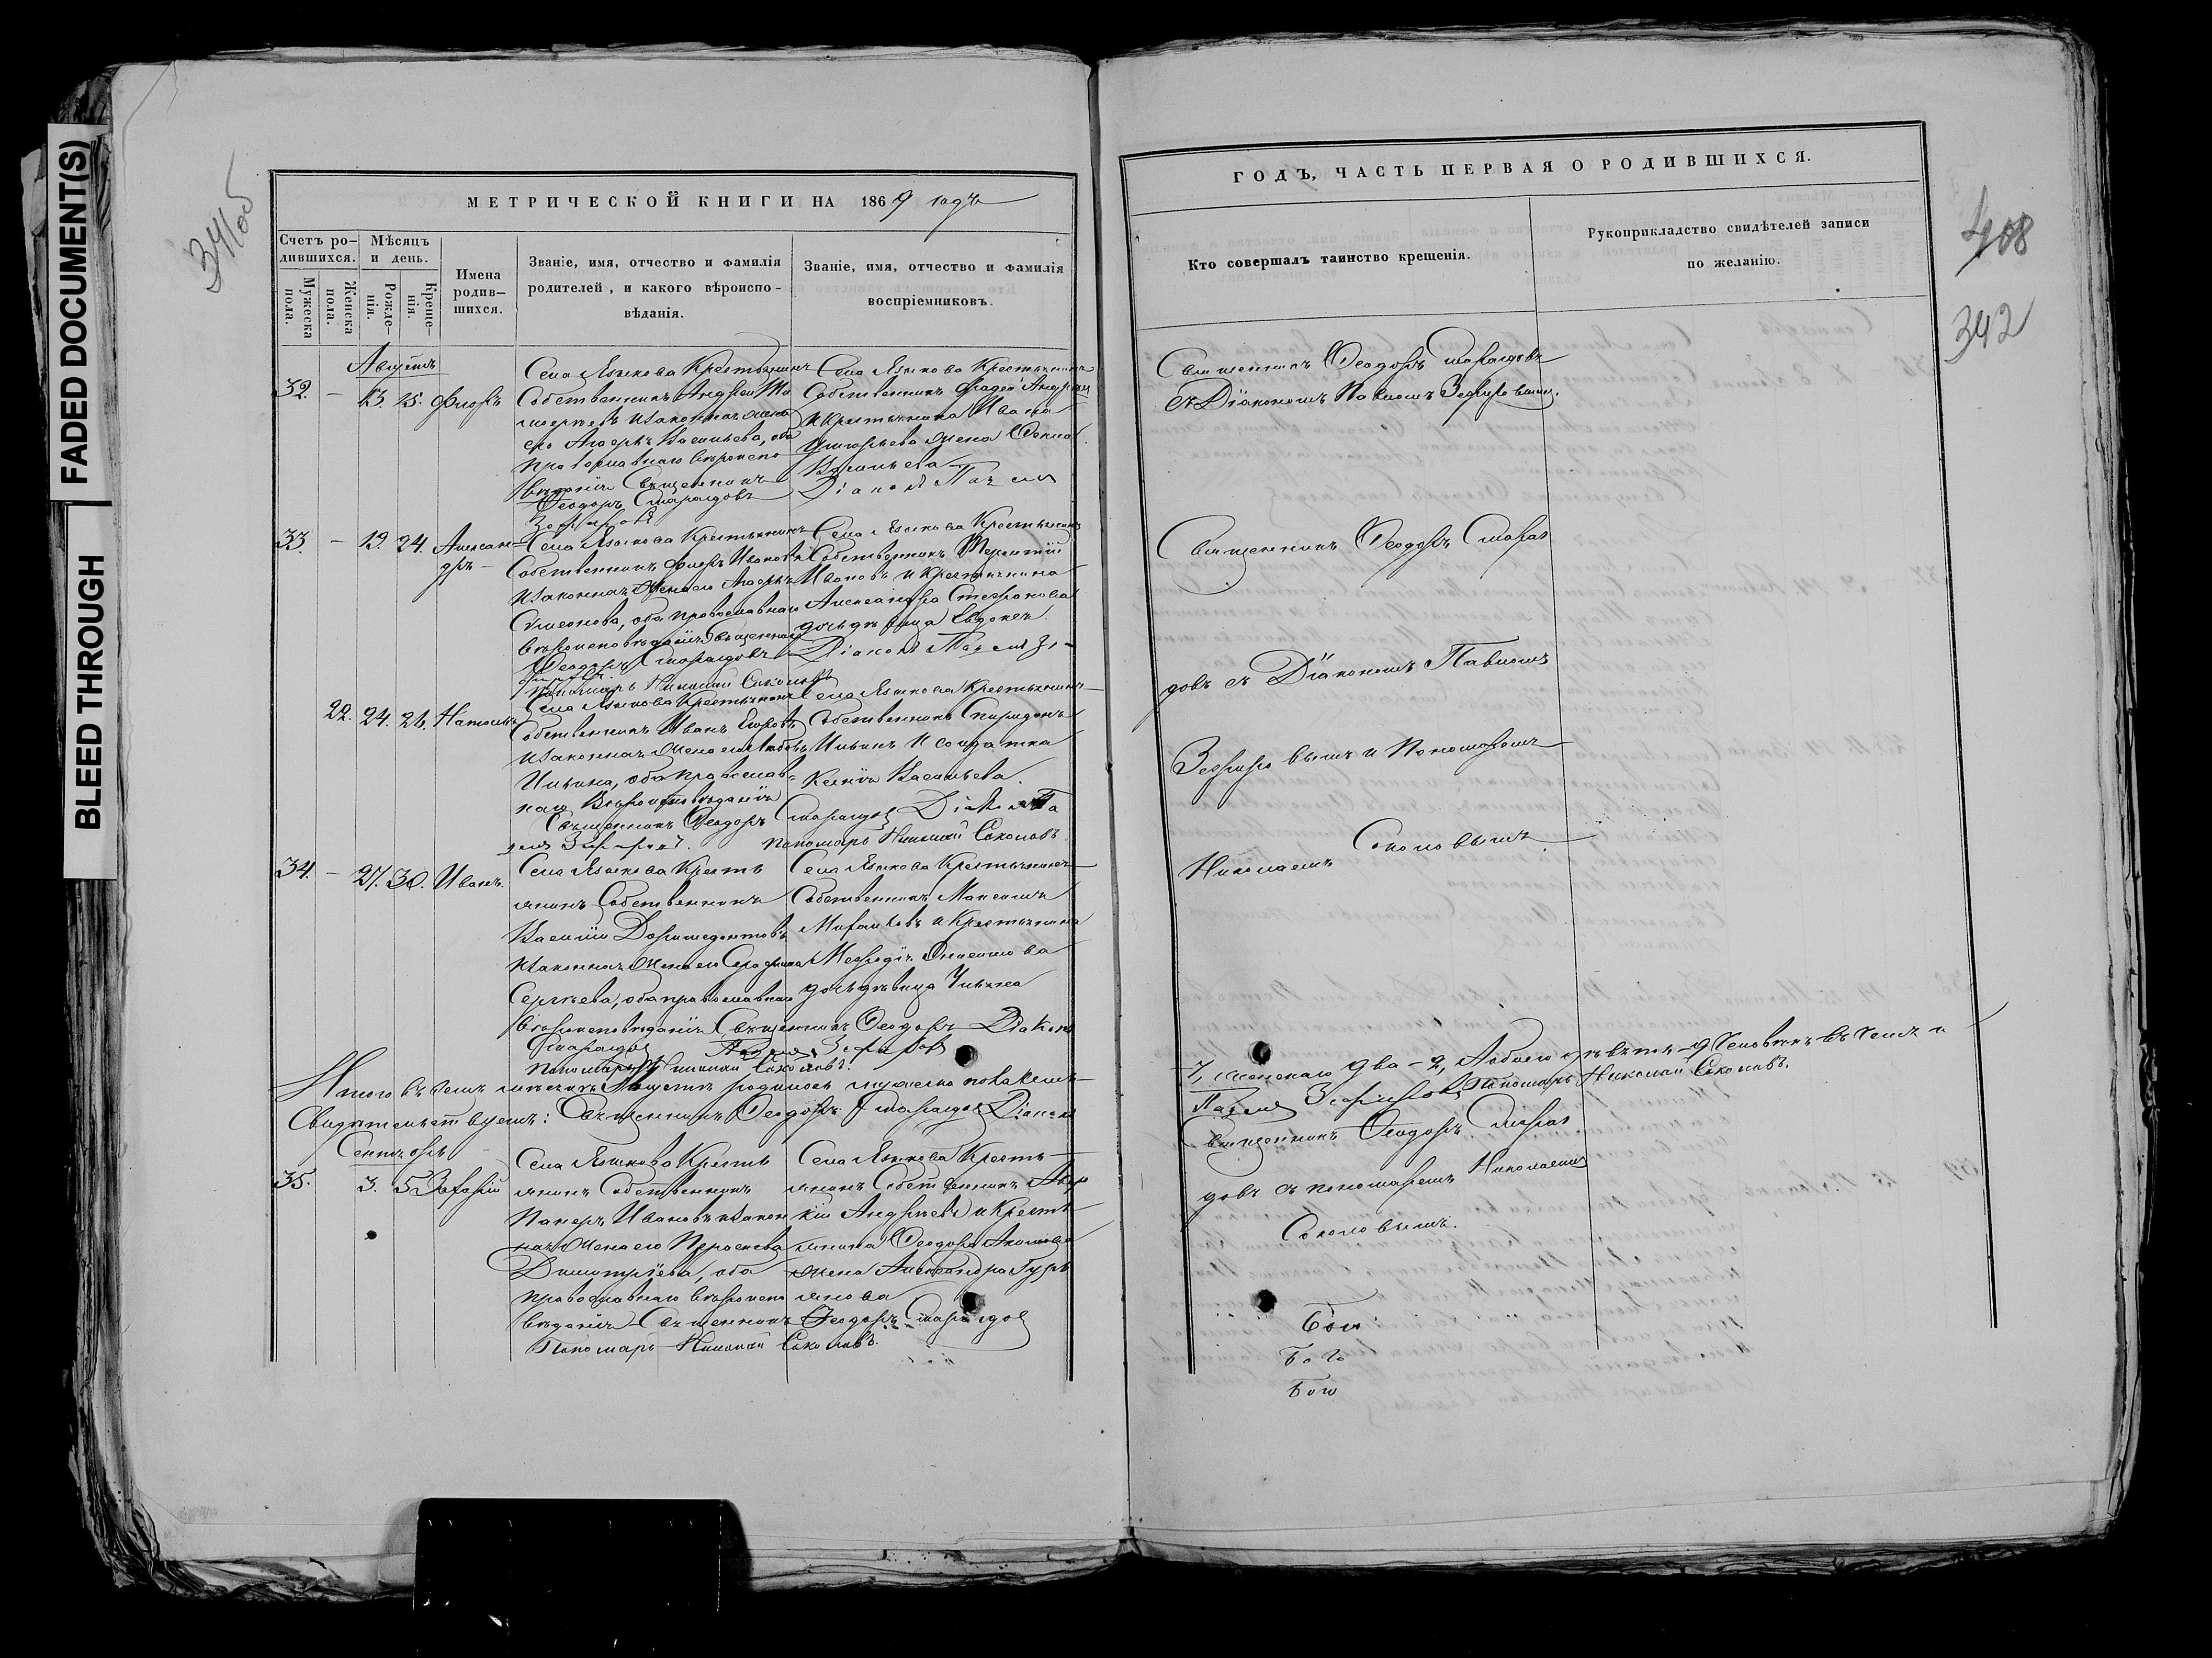 FADED DOCUMENT(S)
BLEED THROUGH
341об
МЕТРИЧЕСКОЙ КНИГИ НА 1869 годъ
Счетъ ро-
дившихся.
Мѣсяцъ
и день.
Мужеска
пола.
Женска
пола.
Рожде-
нія.
Креще-
нія.
Имена
родив-
шихся.
Званіе, имя, отчество и фамилія
родителей, и какого вѣроиспо-
вѣданія.
Званіе, имя, отчество и фамилія
воспріемниковъ.
Августъ
32. – 13. 15. Флоръ
Села Языкова Крестьянинъ
Собственникъ Андрей Ти
моѳеевъ и законная жена
его Агаѳья Васильева, оба
православнаго вѣроиспо
вѣданія Священникъ
Ѳеодоръ Смарагдовъ
Зефировъ
Села Языкова Крестьянинъ
Собственникъ Фадей Андреевъ
и Крестьянина Ивана
Григорьева жена Ѳекла
Васильева
Діаконъ Павелъ
33. – 19. 24. Алексан-
дръ –
Села Языкова Крестьянинъ
Собственникъ Флоръ Ивановъ
и законная жена его Агаѳья
Симеонова, оба православнаго
вѣроисповѣданія Священникъ
Ѳеодоръ Смарагдовъ
Пономарь Николай Соколовъ
Села Языкова Крестьянинъ
Собственникъ Терентій
Ивановъ и Крестьянина
Александра Стефанова
дочь дѣвица Евдокея.
Діаконъ Павелъ Зе-
22. 24. 26. Наталія
Села Языкова Крестьянинъ
Собственникъ Иванъ Егоровъ
и законная жена его Любовь
Ильина, оба православ-
наго Вѣроисповѣданія
Священникъ Ѳеодоръ Смарагдовъ Діаконъ Па
велъ Зефировъ. Пономарь Николай Соколовъ
Села Языкова Крестьянинъ
Собственникъ Спиридонъ
Ильинъ и солдатка
Ксенія Васильева.
34. – 27. 30. Иванъ.
Села Языкова Кресть
янинъ Собственникъ
Василій Доримедонтовъ
и законная жена его Серафима
Сергѣева, оба православнаго
вѣроисповѣданія Священникъ Ѳеодоръ Діаконъ
Смарагдовъ Павелъ Зефировъ
Пономарь Николай Соколовъ.
Села Языкова Крестьянинъ
Собственникъ Максимъ
Михайловъ и Крестьянина
Меѳодія Анисимова
дочь дѣвица Ульяна
Итого въ семъ мѣсяцѣ Августѣ родилось мужеска пола семь
Свидѣтельствуемъ: Священникъ Ѳеодоръ Смарагдовъ Діаконъ
Сентябрь
35. 3. 5 Захарій
Села Языкова Кресть
янинъ Собственникъ
Иванов и закон
ная жена его
Димитріева, оба
православнаго вѣроиспо
вѣданія Священникъ Ѳеодоръ Смарагдовъ
Пономарь Николай Соколовъ.
Села Языкова Кресть
янинъ Собственникъ
Андреевъ и Кресть
янина Ѳеодора Акимова
жена Александра Гурь
янова
ГОДЪ, ЧАСТЬ ПЕРВАЯ О РОДИВШИХСЯ.
Кто совершалъ таинство крещенія.
Рукоприкладство свидѣтелей записи
по желанію.
408
342
Священникъ Ѳеодоръ Смарагдовъ
съ Діакономъ Павломъ Зефировымъ.
Священникъ Ѳеодоръ Смараг
довъ съ Діакономъ Павломъ
Зефировымъ и Пономаремъ
Николаемъ Соколовымъ.
7, женскаго два – 2, А обоего девять – 9 человѣкъ въ чемъ и
Павелъ Зефировъ Пономарь Николай Соколовъ.
Священникъ Ѳеодоръ Смараг
довъ съ пономаремъ Николаемъ
Соколовымъ.